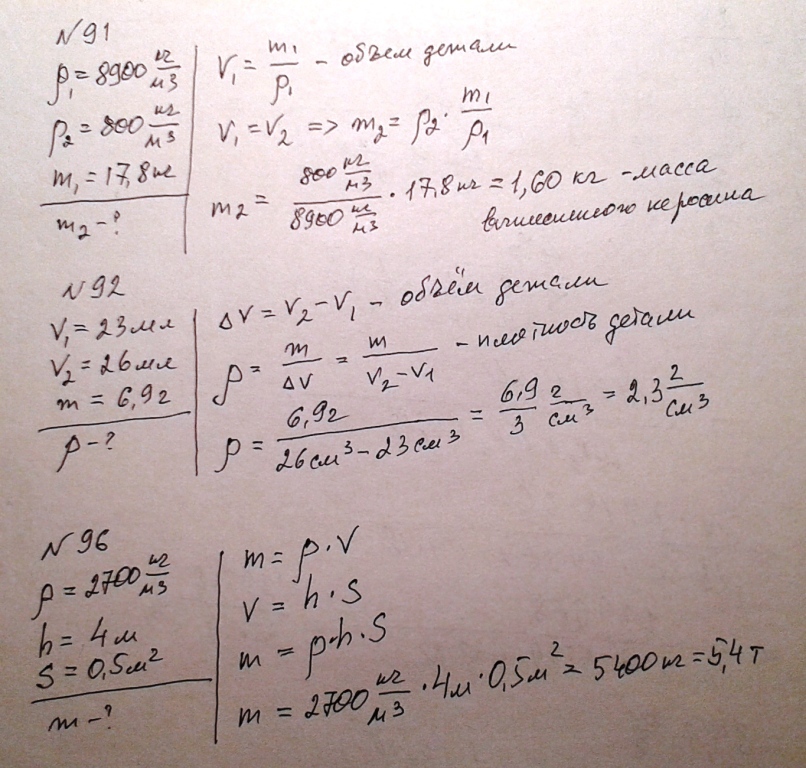 №91
ρ₁ = 8900 кг/м3
ρ₂ = 800 кг/м3
m₁ = 17,8 кг
m₂ - ?
V₁ = m₁/ρ₁ - объем детали
V₁ = V₂ => m₂ = ρ₂ · m₁/ρ₁
m₂ = (800 кг/м3)/(8900 кг/м3) · 17,8 кг = 1,60 кг - масса
вытесненного керосина
№92
V₁ = 23 мл
V₂ = 26 мл
m = 6,9 г
ρ - ?
ΔV = V₂ - V₁ - объём детали
ρ = m/ΔV = m/(V₂ - V₁) - плотность детали
ρ = 6,9 г/(26 см³ - 23 см³) = 6,9/3 г/см³ = 2,3 г/см³
№96
ρ = 2700 кг/м3
h = 4 м
S = 0,5 м²
m - ?
m = ρ · V
V = h · S
m = ρ · h · S
m = 2700 кг/м3 · 4 м · 0,5 м² = 5400 кг = 5,4 т